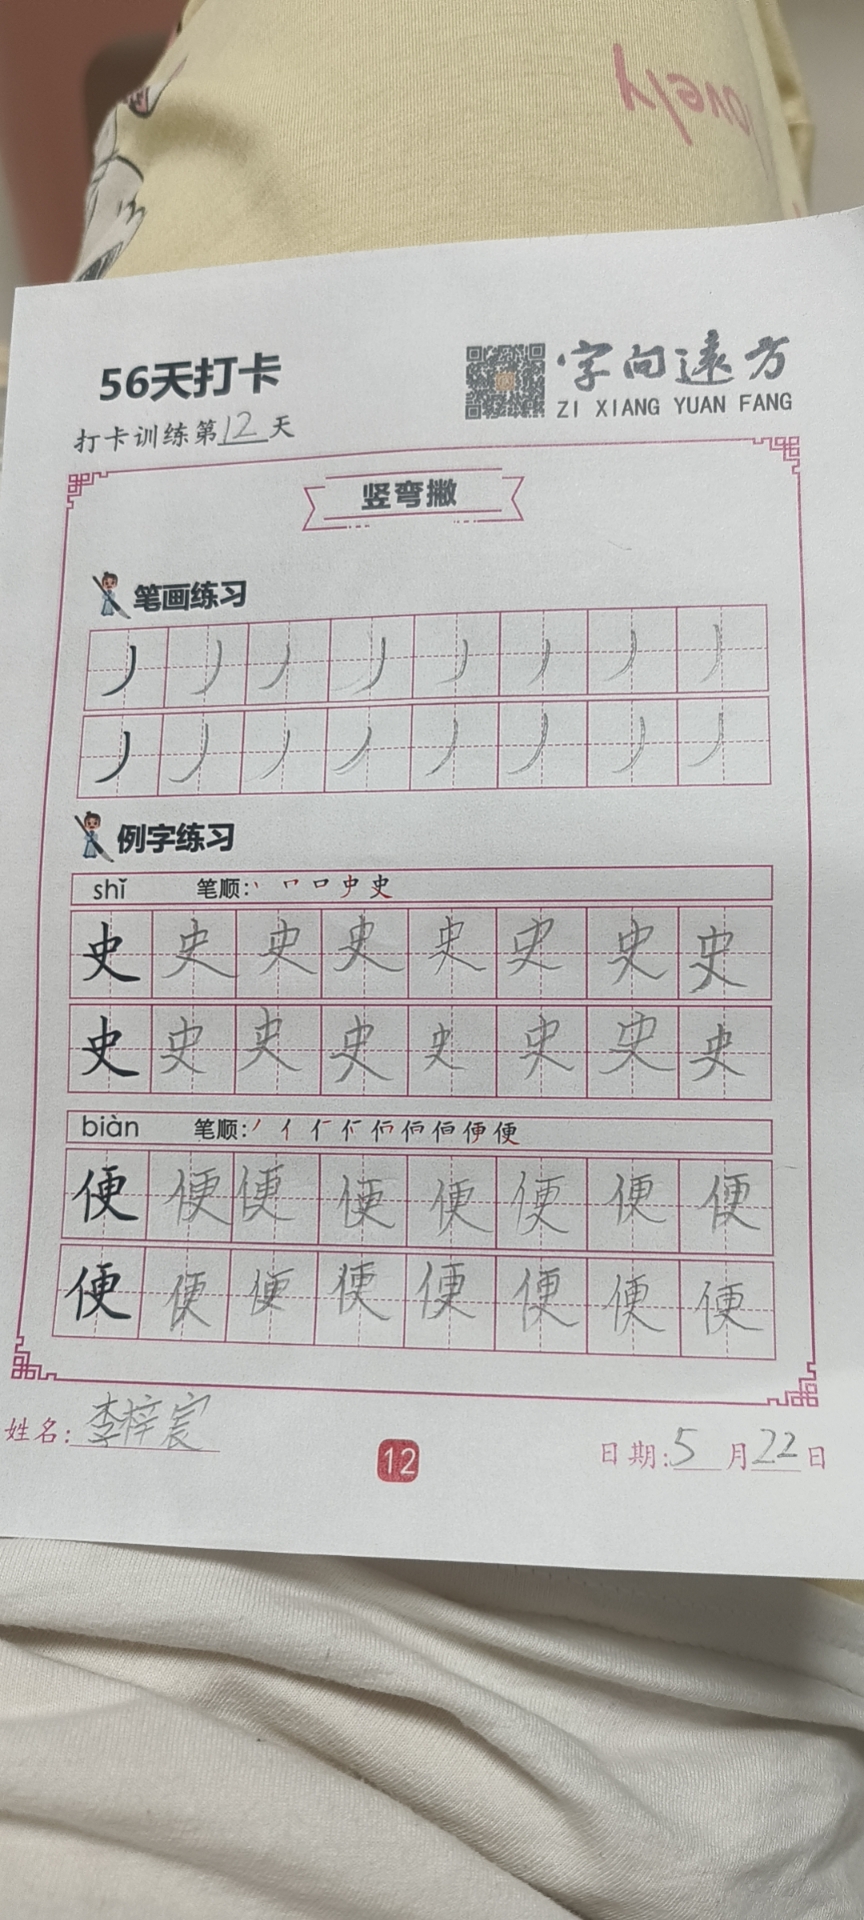 lovely
56天打卡
字向远方
ZI XIANG YUAN FANG
打卡训练第12天
竖弯撇
笔画练习
丿丿丿丿丿丿丿丿
丿丿丿丿丿丿丿丿
例字练习
shǐ 笔顺:
史史史史史史史史
史史史史史史史史
biàn 笔顺:
便便便便便便便便
便便便便便便便便
姓名:李梓宸
12
日期:5月22日